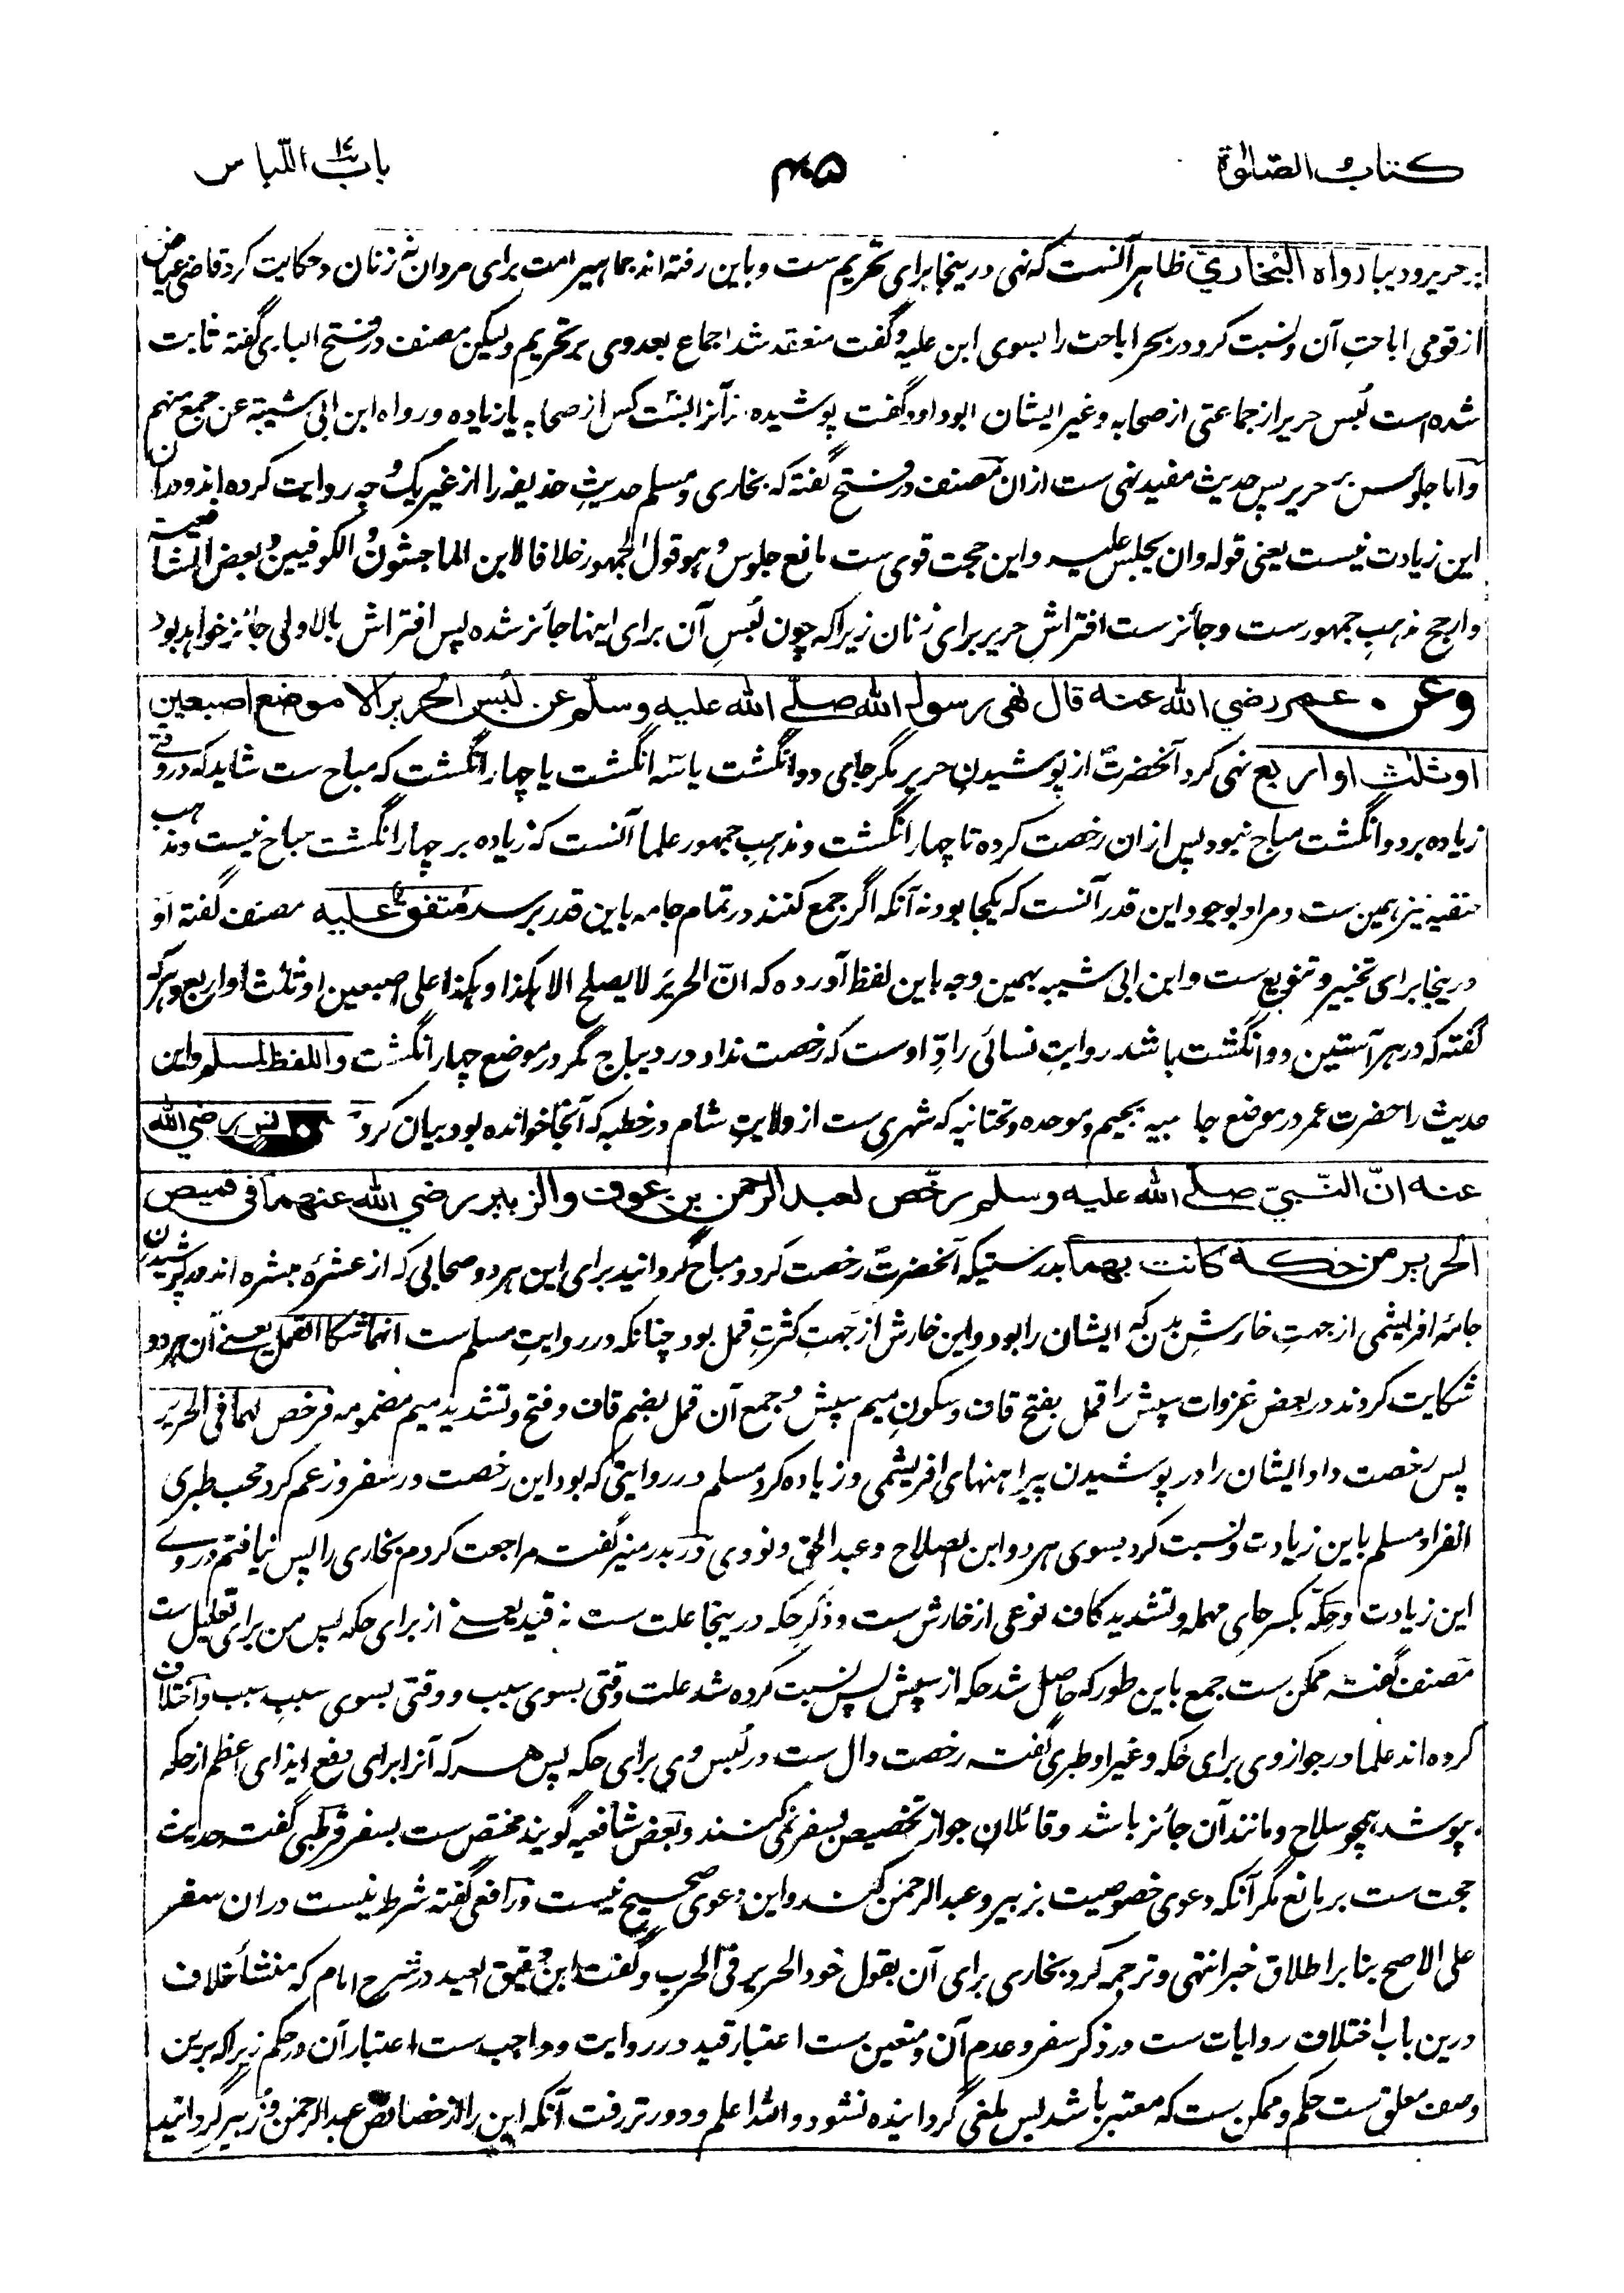 کتاب الصلوٰة
۴۵
باب اللباس
بر حریر و دیبا رواه البخاري ظاهر آنست که نهی درینجا برای تحریم ست و باین رفته اند جماهیر امت برای مردان نه زنان و حکایت کرد قاضی عیاض
از قومی اباحتِ آن و نسبت کرد در بحر اباحت را بسوی ابن علیه و گفت منعقد شد اجماع بعد وی بر تحریم ولیکن مصنف در فتح الباری گفته ثابت
شده است لُبس حریر از جماعتی از صحابه و غیر ایشان ابوداود گفت پوشیده اند آنرا بست کس از صحابه یا زیاده و رواه ابن ابی شیبة عن جمع منهم
و اما جلوس بر حریر پس حدیث مفید نهی ست ازان مصنف در فتح گفته که بخاری و مسلم حدیثِ حذیفه را از غیر یک وجه روایت کرده اند و دران
این زیادت نیست یعنی قوله وان یجلس علیه و این حجت قوی ست مانع جلوس و هو قول الجمهور خلافا لابن الماجشون و الکوفیین و بعض الشافعیة
و ارجح مذهبِ جمهورست و جائزست افتراشِ حریر برای زنان زیرا که چون لُبسِ آن برای اینها جائز شده پس افتراش بالاولی جائز خواهد بود
وعن عمر رضي الله عنه قال نهى رسول الله صلے الله عليه وسلم عن لبس الحرير الا موضع اصبعين
او ثلث او اربع نهی کرد آنحضرتؐ از پوشیدنِ حریر مگر جای دو انگشت یا سه انگشت یا چهار انگشت که مباح ست شاید که در وقتے
زیاده بر دو انگشت مباح نبود پس ازان رخصت کرده تا چهار انگشت و مذهبِ جمهور علما آنست که زیاده بر چهار انگشت مباح نیست و مذهب
حنفیه نیز همین ست و مراد بوجود این قدر آنست که یکجا بود نه آنکه اگر جمع کنند در تمام جامه باین قدر برسد متفق عليه مصنف گفته او
درینجا برای تخییر و تنویع ست و ابن ابی شیبه بهمین وجه باین لفظ آورده که انّ الحریرَ لا یصلح الا هکذا و هکذا علی اصبعین او ثلث او اربع و هر که
گفته که در هر آستین دو انگشت باشد روایتِ نسائی رادِّ اوست که رخصت نداد در دیباج مگر در موضع چهار انگشت واللفظ لمسلم و این
حدیث را حضرت عمر در موضع جابیه بجیم و موحده و تحتانیه که شهری ست از ولایتِ شام در خطبه که آنجا خوانده بود بیان کرد وعن انس رضي الله
عنه انّ النّبيّ صلے الله عليه وسلم رخّص لعبد الرحمن بن عوف والزبير رضي الله عنهما في قميص
الحرير من حكة كانت بهما بدرستیکه آنحضرتؐ رخصت کرد و مباح گردانید برای این هر دو صحابی که از عشرهٔ مبشره اند در پوشیدن
جامهٔ ابریشمی از جهتِ خارشِ بدن که ایشان را بود و این خارش از جهتِ کثرتِ قمل بود چنانکه در روایتِ مسلم ست انهما شکا القمل یعنے آن هر دو
شکایت کردند در بعض غزوات سپش را قمل بفتح قاف و سکونِ میم سپش و جمع آن قمل بضم قاف و فتح و تشدید میم مضمومه فرخص لهما فی الحریر
پس رخصت داد ایشان را در پوشیدن پیراهنهای ابریشمی و زیاده کرد مسلم در روایتی که بود این رخصت در سفر و زعم کرد محب طبری
انفراد مسلم باین زیادت و نسبت کرد بسوی هر دو ابن الصلاح و عبدالحق و نووی و در بدر منیر گفته مراجعت کردم بخاری را پس نیافتم در وے
این زیادت و حِکّه بکسر حای مهمله و تشدید کاف نوعی از خارش ست و ذکرِ حکه درینجا علت ست نه قید یعنے از برای حکه پس من برای تعلیل ست
مصنف گفته ممکن ست جمع باین طور که حاصل شد حکه از سپش پس نسبت کرده شد علت وقتی بسوی سبب و وقتی بسوی سببِ سبب و اختلاف
کرده اند علما در جواز وی برای حکه و غیر او طبری گفته رخصت دال ست در لُبس وی برای حکه پس هر که آنرا برای دفع ایذای اعظم از حکه
بپوشد همچو سلاح و مانند آن جائز باشد و قائلان جواز تخصیص بسفر نمی کنند و بعض شافعیه گویند مختص ست بسفر قرطبی گفته حدیث
حجت ست بر مانع مگر آنکه دعوی خصوصیت بزبیر و عبدالرحمن کنند و این دعوی صحیح نیست و رافعی گفته شرط نیست دران سفر
علی الاصح بنا بر اطلاق خبر انتهی و ترجمه کرد بخاری برای آن بقول خود الحریر فی الحرب و گفت ابن دقیق العید در شرح امام که منشأ خلاف
درین باب اختلاف روایات ست در ذکر سفر و عدم آن و متعین ست اعتبار قید در روایت و واجب ست اعتبار آن در حکم زیرا که برین
وصف معلق ست حکم و ممکن ست که معتبر باشد پس ملغی گردانیده نشود والله اعلم و دور تر رفت آنکه این را از خصائص عبدالرحمن و زبیر گردانید